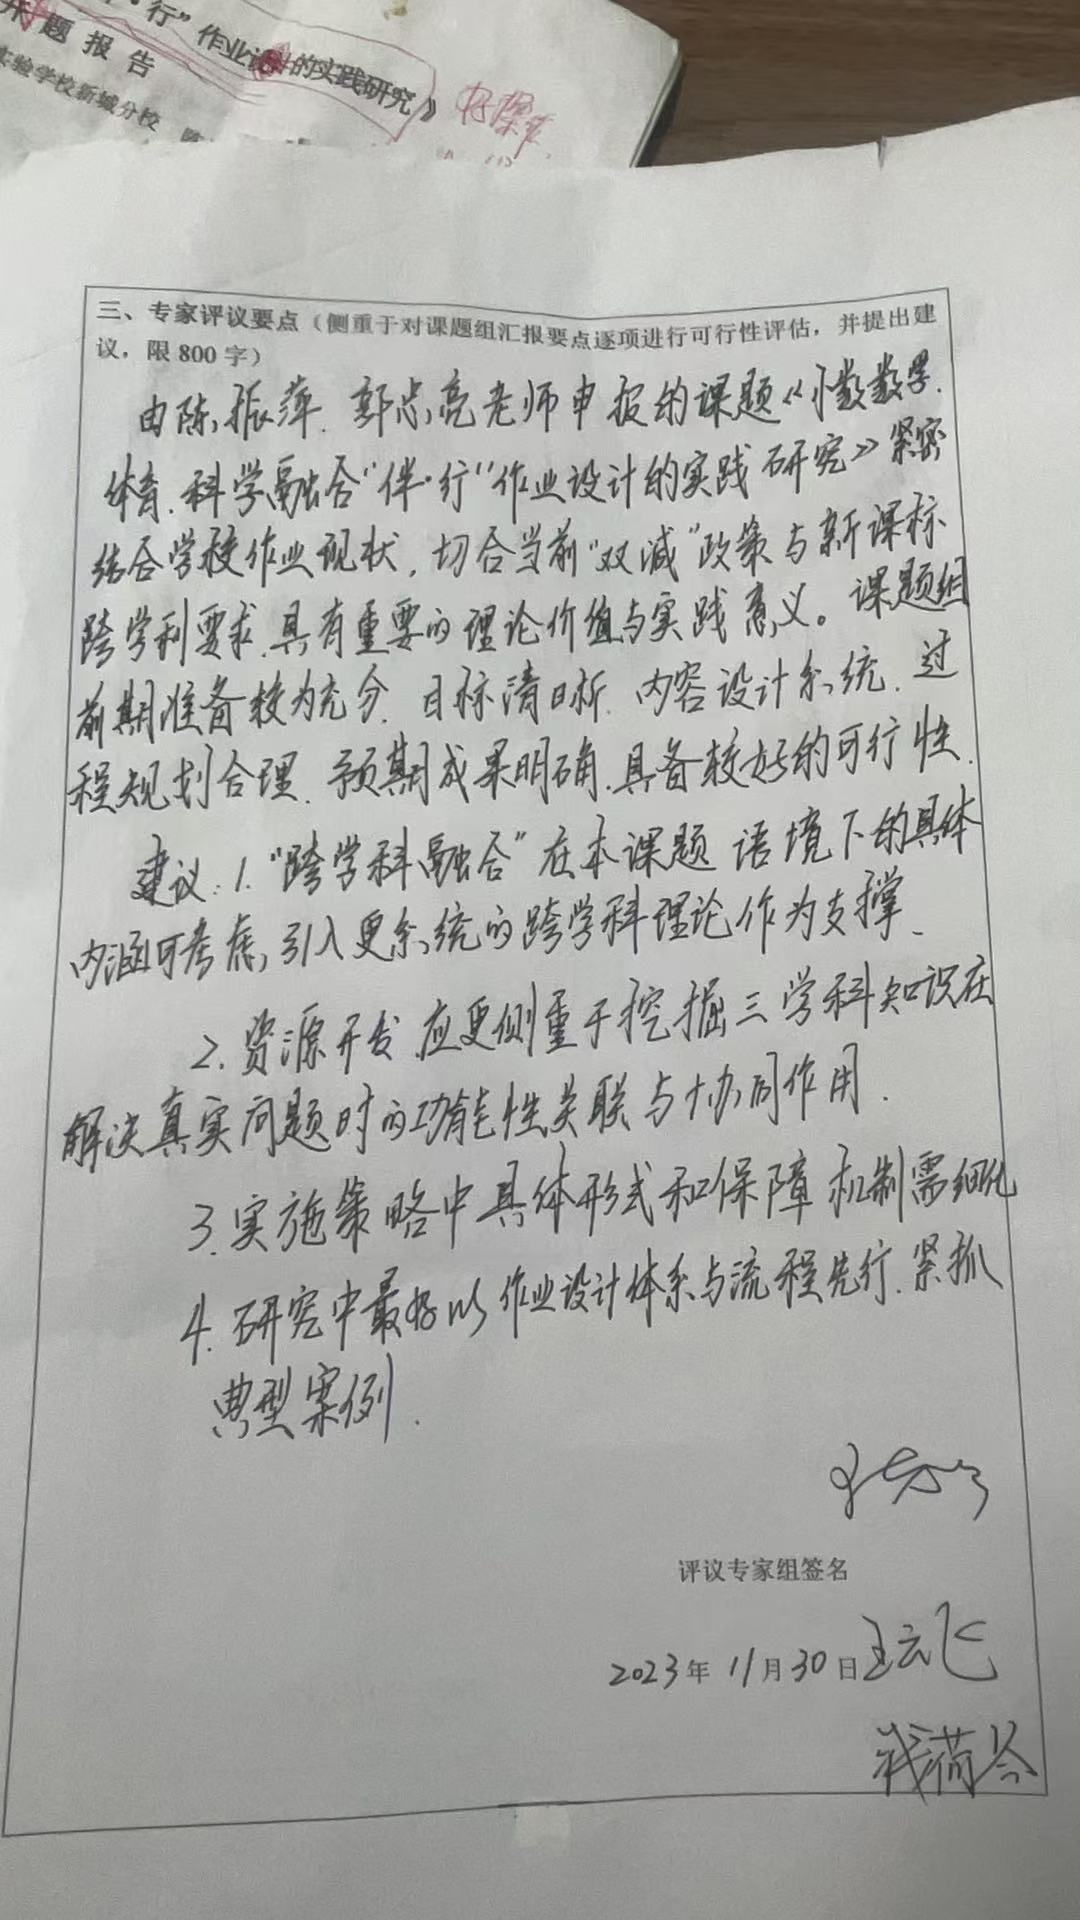 行”作业设计的实践研究》
开题报告
实验学校新城分校
三、专家评议要点（侧重于对课题组汇报要点逐项进行可行性评估，并提出建
议，限800字）
由陈振萍、郭忠亮老师申报的课题《小数数学、
体育、科学融合“伴·行”作业设计的实践研究》紧密
结合学校作业现状，切合当前“双减”政策与新课标
跨学科要求，具有重要的理论价值与实践意义。课题组
前期准备较为充分，目标清晰，内容设计系统，过
程规划合理，预期成果明确，具备较好的可行性。
建议：1.“跨学科融合”在本课题语境下的具体
内涵可考虑引入更系统的跨学科理论作为支撑。
2.资源开发应更侧重于挖掘三学科知识在
解决真实问题时的功能性关联与协同作用.
3.实施策略中具体形式和保障机制需细化
4.研究中最好以作业设计体系与流程先行，紧抓
典型案例.
评议专家组签名
2023年11月30日 王云飞